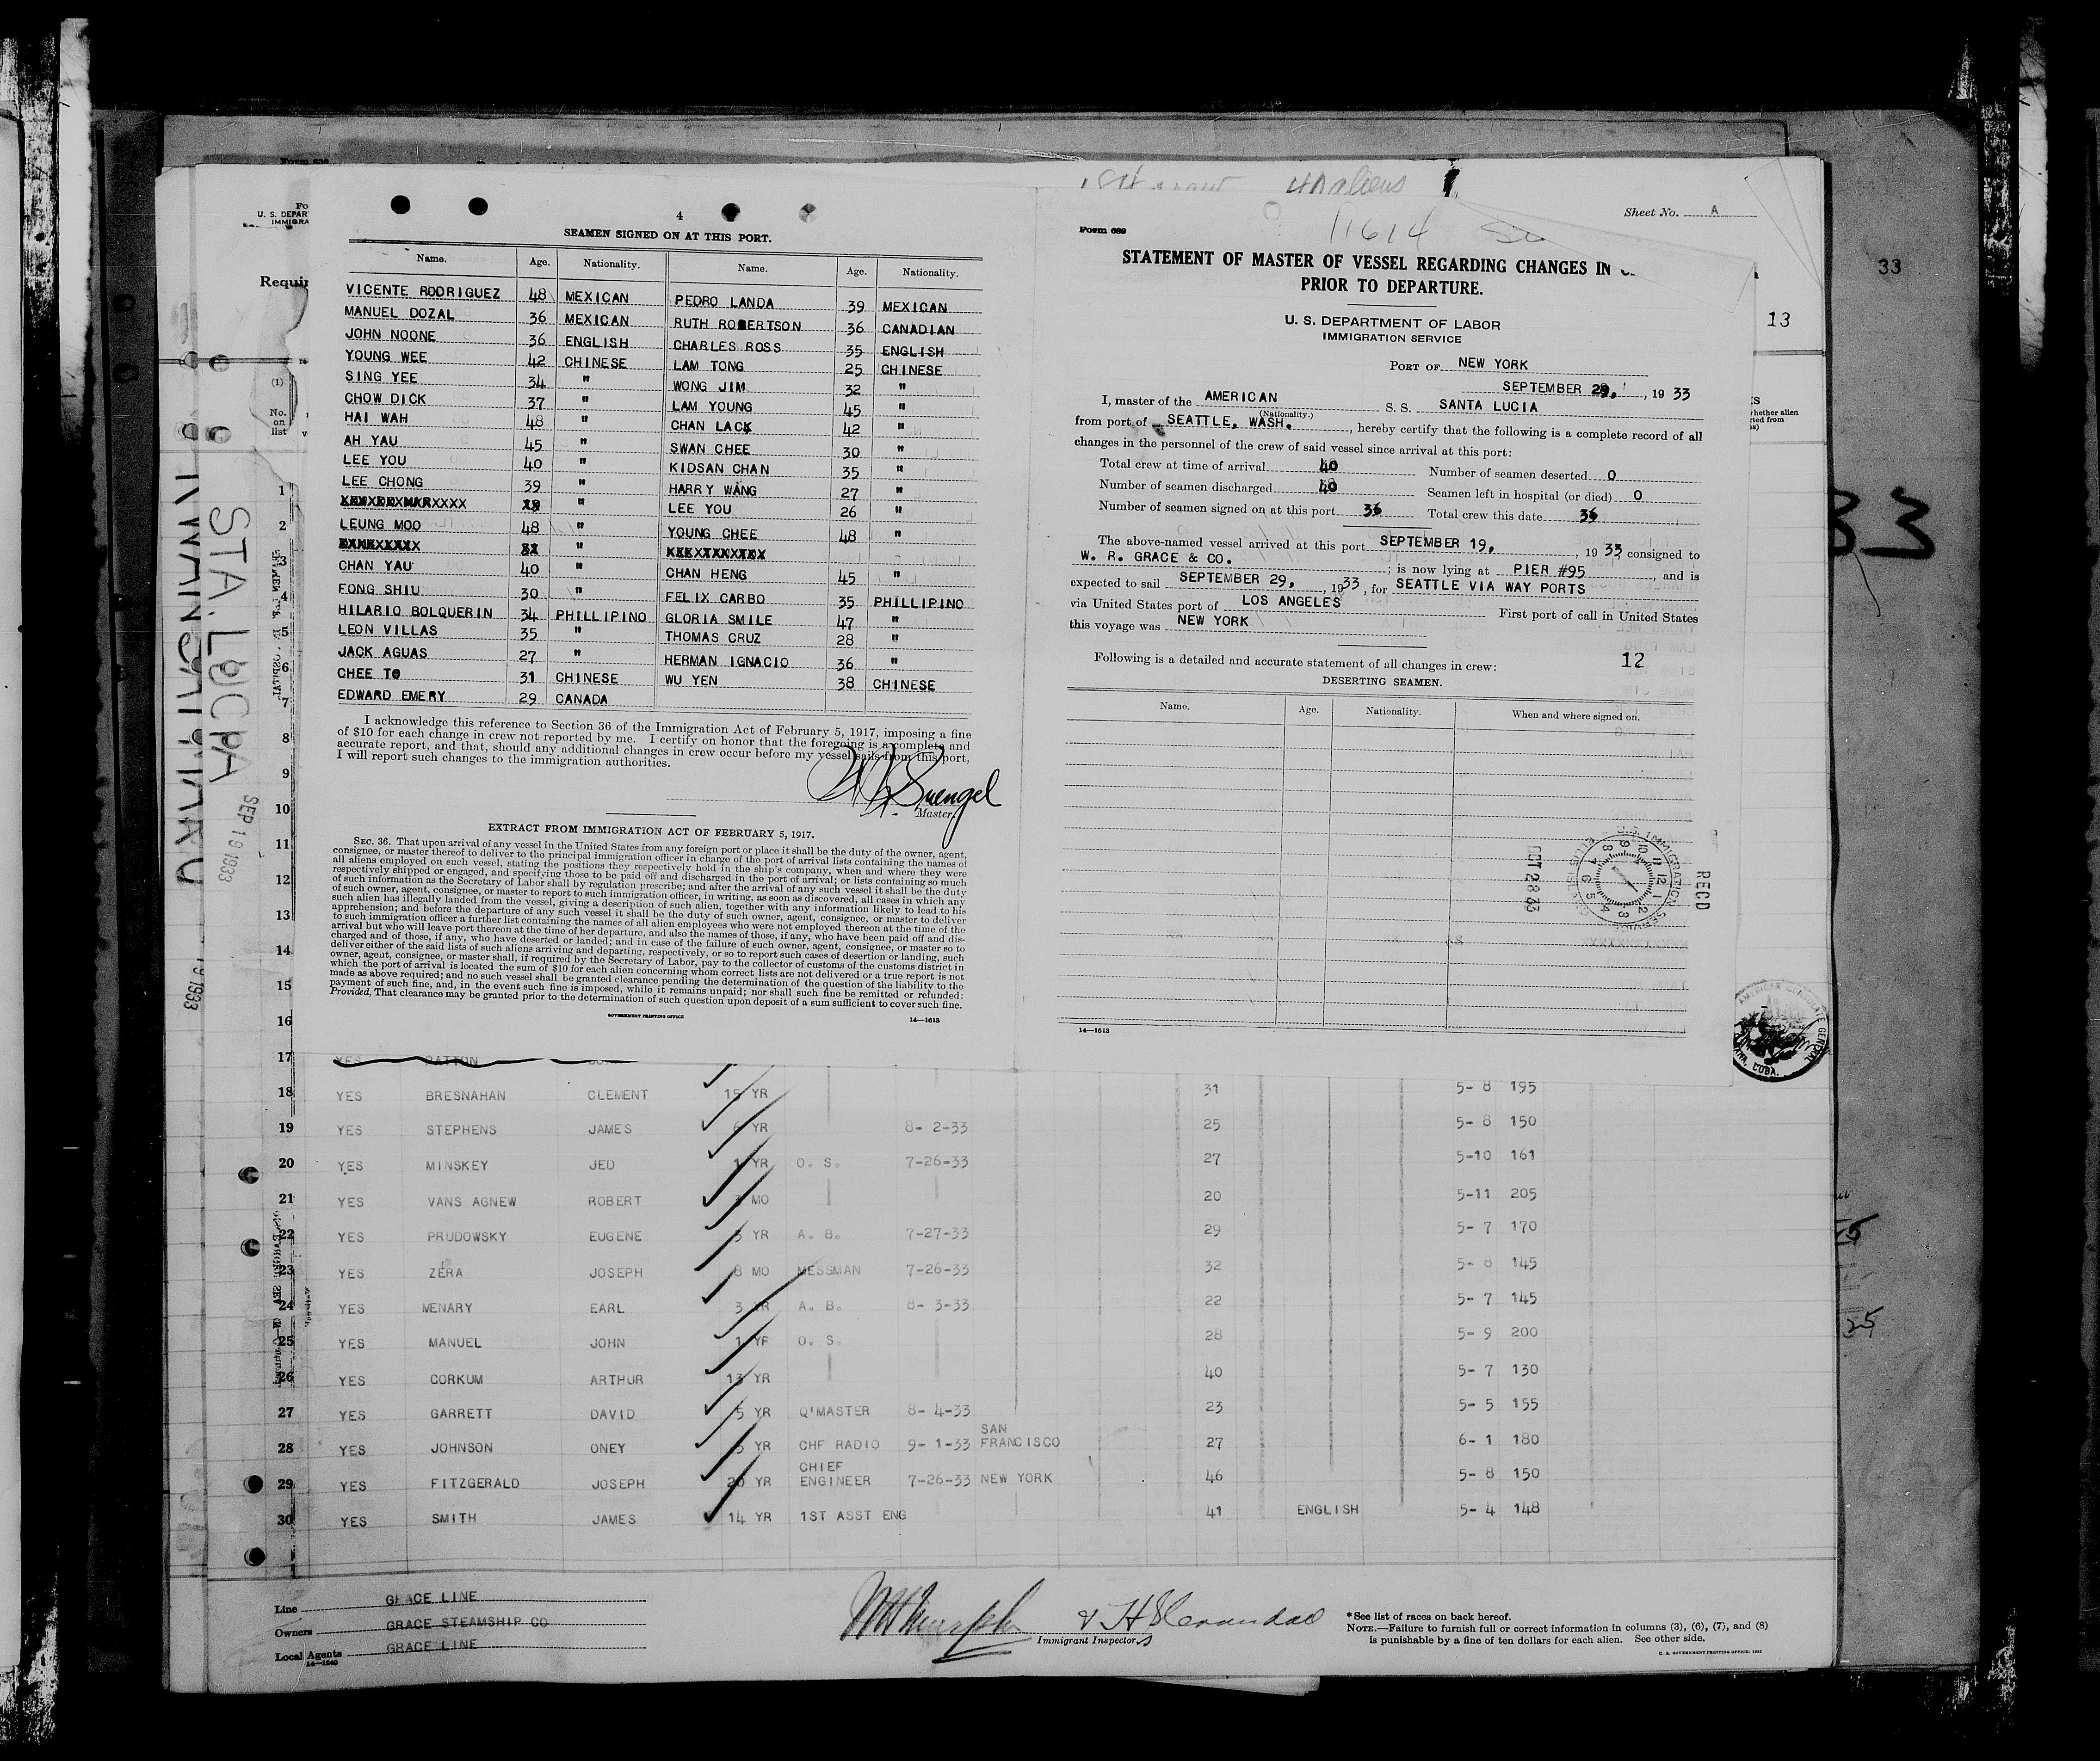 4
SEAMEN SIGNED ON AT THIS PORT.
Name. Age. Nationality. Name. Age. Nationality.
VICENTE RODRIGUEZ 48 MEXICAN PEDRO LANDA 39 MEXICAN
MANUEL DOZAL 36 MEXICAN RUTH ROBERTSON 36 CANADIAN
JOHN NOONE 36 ENGLISH CHARLES ROSS 35 ENGLISH
YOUNG WEE 42 CHINESE LAM TONG 25 CHINESE
SING YEE 34 " WONG JIM 32 "
CHOW DICK 37 " LAM YOUNG 45 "
HAI WAH 48 " CHAN LACK 42 "
AH YAU 45 " SWAN CHEE 30 "
LEE YOU 40 " KIDSAN CHAN 35 "
LEE CHONG 39 " HARRY WANG 27 "
" LEE YOU 26 "
LEUNG MOO 48 " YOUNG CHEE 48 "
"
CHAN YAU 40 " CHAN HENG 45 "
FONG SHIU 30 " FELIX CARBO 35 PHILLIPINO
HILARIO BOLQUERIN 34 PHILLIPINO GLORIA SMILE 47 "
LEON VILLAS 35 " THOMAS CRUZ 28 "
JACK AGUAS 27 " HERMAN IGNACIO 36 "
CHEE TO 31 CHINESE WU YEN 38 CHINESE
EDWARD EMERY 29 CANADA
I acknowledge this reference to Section 36 of the Immigration Act of February 5, 1917, imposing a fine
of $10 for each change in crew not reported by me. I certify on honor that the foregoing is a complete and
accurate report, and that, should any additional changes in crew occur before my vessel sails from this port,
I will report such changes to the immigration authorities.
Master.
EXTRACT FROM IMMIGRATION ACT OF FEBRUARY 5, 1917.
SEC. 36. That upon arrival of any vessel in the United States from any foreign port or place it shall be the duty of the owner, agent,
consignee, or master thereof to deliver to the principal immigration officer in charge of the port of arrival lists containing the names of
all aliens employed on such vessel, stating the positions they respectively hold in the ship's company, when and where they were
respectively shipped or engaged, and specifying those to be paid off and discharged in the port of arrival; or lists containing so much
of such information as the Secretary of Labor shall by regulation prescribe; and after the arrival of any such vessel it shall be the duty
of such owner, agent, consignee, or master to report to such immigration officer, in writing, as soon as discovered, all cases in which any
such alien has illegally landed from the vessel, giving a description of such alien, together with any information likely to lead to his
apprehension; and before the departure of any such vessel it shall be the duty of such owner, agent, consignee, or master to deliver
to such immigration officer a further list containing the names of all alien employees who were not employed thereon at the time of the
arrival but who will leave port thereon at the time of her departure, and also the names of those, if any, who have been paid off and dis-
charged and of those, if any, who have deserted or landed; and in case of the failure of such owner, agent, consignee, or master so to
deliver either of the said lists of such aliens arriving and departing, respectively, or so to report such cases of desertion or landing, such
owner, agent, consignee, or master shall, if required by the Secretary of Labor, pay to the collector of customs of the customs district in
which the port of arrival is located the sum of $10 for each alien concerning whom correct lists are not delivered or a true report is not
made as above required; and no such vessel shall be granted clearance pending the determination of the question of the liability to the
payment of such fine, and, in the event such fine is imposed, while it remains unpaid; nor shall such fine be remitted or refunded:
Provided, That clearance may be granted prior to the determination of such question upon deposit of a sum sufficient to cover such fine.
GOVERNMENT PRINTING OFFICE 14—1613
aliens
Sheet No. A
Form 689
STATEMENT OF MASTER OF VESSEL REGARDING CHANGES IN
PRIOR TO DEPARTURE.
U. S. DEPARTMENT OF LABOR
IMMIGRATION SERVICE
PORT OF NEW YORK
SEPTEMBER 29, , 19 33
I, master of the AMERICAN S. S. SANTA LUCIA
(Nationality.)
from port of SEATTLE, WASH. , hereby certify that the following is a complete record of all
changes in the personnel of the crew of said vessel since arrival at this port:
Total crew at time of arrival 40 Number of seamen deserted 0
Number of seamen discharged 40 Seamen left in hospital (or died) 0
Number of seamen signed on at this port 36 Total crew this date 36
The above-named vessel arrived at this port SEPTEMBER 19, , 19 33 consigned to
W. R. GRACE & CO. ; is now lying at PIER #95 , and is
expected to sail SEPTEMBER 29, , 1933 , for SEATTLE VIA WAY PORTS
via United States port of LOS ANGELES First port of call in United States
this voyage was NEW YORK
Following is a detailed and accurate statement of all changes in crew: 12
DESERTING SEAMEN.
Name. Age. Nationality. When and where signed on.
RECD
OCT 2 8 33
14—1613
33
13
STA. LUCIA
SEP 19 1933
17 YES PATTON
18 YES BRESNAHAN CLEMENT 15 YR 31 5- 8 195
19 YES STEPHENS JAMES 6 YR 8- 2-33 25 5- 8 150
20 YES MINSKEY JED 1 YR O. S. 7-26-33 27 5-10 161
21 YES VANS AGNEW ROBERT 3 MO 20 5-11 205
22 YES PRUDOWSKY EUGENE 5 YR A. B. 7-27-33 29 5- 7 170
23 YES ZERA JOSEPH 8 MO MESSMAN 7-26-33 32 5- 8 145
24 YES MENARY EARL 3 YR A. B. 8- 3-33 22 5- 7 145
25 YES MANUEL JOHN 1 YR O. S. 28 5- 9 200
26 YES CORKUM ARTHUR 13 YR 40 5- 7 130
27 YES GARRETT DAVID 5 YR Q'MASTER 8- 4-33 23 5- 5 155
28 YES JOHNSON ONEY 5 YR CHF RADIO 9- 1-33 SAN FRANCISCO 27 6- 1 180
29 YES FITZGERALD JOSEPH 20 YR CHIEF ENGINEER 7-26-33 NEW YORK 46 5- 8 150
30 YES SMITH JAMES 14 YR 1ST ASST ENG 41 ENGLISH 5- 4 148
Line GRACE LINE
Owners GRACE STEAMSHIP CO
Local Agents GRACE LINE
14—1240
Immigrant Inspectors
*See list of races on back hereof.
NOTE.—Failure to furnish full or correct information in columns (3), (6), (7), and (8)
is punishable by a fine of ten dollars for each alien. See other side.